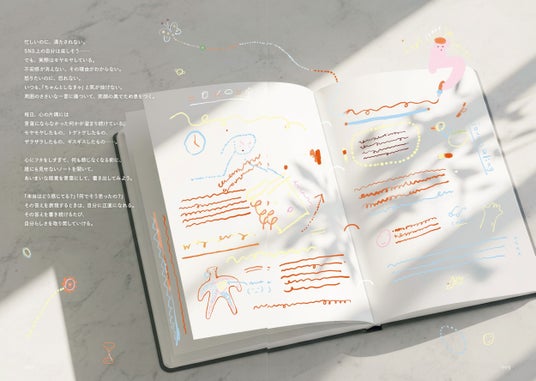 忙しいのに、満たされない。
SNS上の自分は楽しそう——
でも、実際はモヤモヤしている。
不安感が消えない、その理由がわからない。
怒りたいのに、怒れない。
いつも「ちゃんとしなきゃ」と気が抜けない。
周囲のささいな一言に傷ついて、笑顔の裏でため息をつく。
毎日、心の片隅には
言葉にならなかった何かが溜まり続けている。
モヤモヤしたもの、トゲトゲしたもの、
ザラザラしたもの、ギスギスしたもの——。
心にフタをしすぎて、何も感じなくなる前に、
誰にも見せないノートを開いて、
あいまいな感覚を言葉にして、書き出してみよう。
「本当はどう感じてる？」「何でそう思ったの？」
その答えを表現するときは、自分に正直になれる。
その答えを書き続けるたび、
自分らしさを取り戻していける。